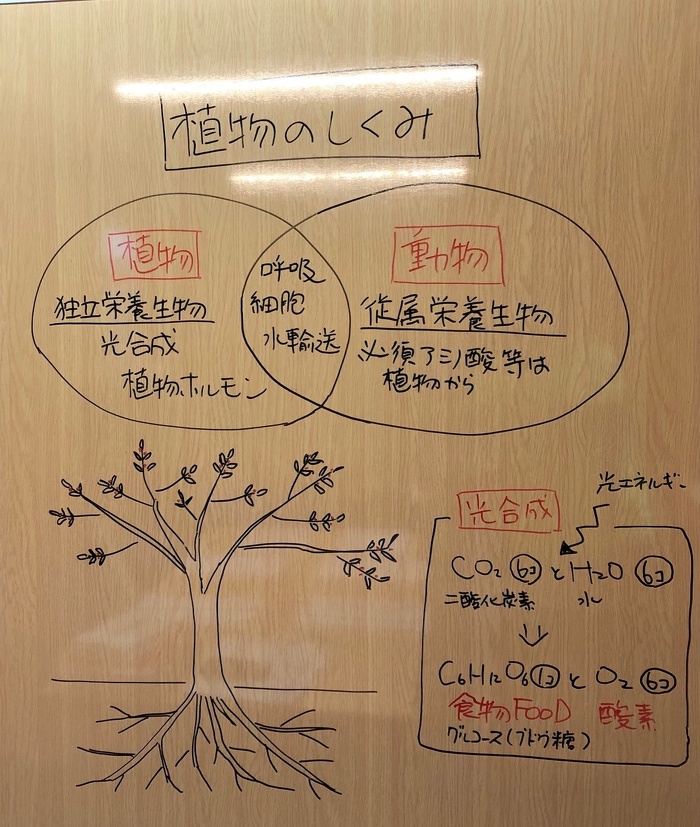 植物のしくみ
植物
独立栄養生物
光合成
植物ホルモン
呼吸
細胞
水輸送
動物
従属栄養生物
必須アミノ酸等は
植物から
光合成
光エネルギー
CO₂ 6コ と H₂O 6コ
二酸化炭素 水
↓
C₆H₁₂O₆ 1コ と O₂ 6コ
食物FOOD 酸素
グルコース(ブドウ糖)